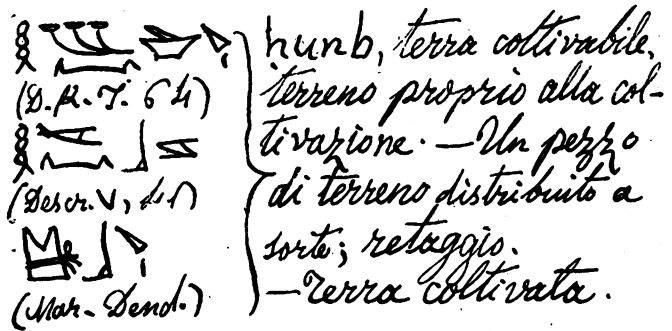 (Descr. V,
(Mar. Dend.)
hunb, terra coltivabile,
terreno proprio alla col-
tivazione. — Un pezzo
di terreno distribuito a
sorte; retaggio.
— Terra coltivata.